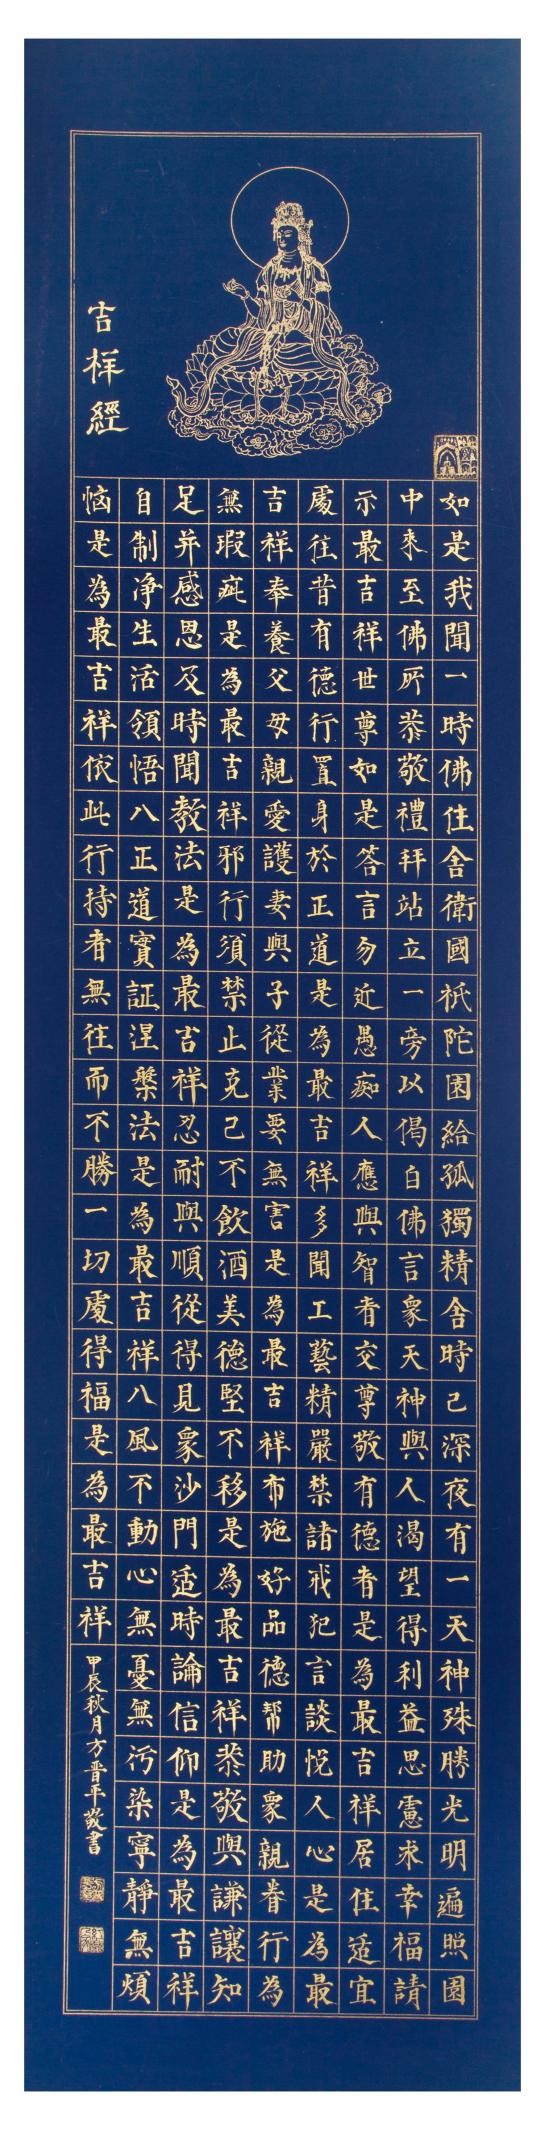 吉祥經
如是我聞一時佛住舍衛國祇陀園給孤獨精舍時已深夜有一天神殊勝光明遍照園
中來至佛所恭敬禮拜站立一旁以偈白佛言衆天神與人渴望得利益思慮求幸福請
示最吉祥世尊如是答言勿近愚痴人應與智者交尊敬有德者是為最吉祥居住适宜
處往昔有德行置身於正道是為最吉祥多聞工藝精嚴禁諸戒犯言談悅人心是為最
吉祥奉養父母親愛護妻與子從業要無害是為最吉祥布施好品德幫助衆親眷行為
無瑕疵是為最吉祥邪行須禁止克己不飲酒美德堅不移是為最吉祥恭敬與謙讓知
足并感恩及時聞教法是為最吉祥忍耐與順從得見衆沙門适時論信仰是為最吉祥
自制净生活領悟八正道實証涅槃法是為最吉祥八風不動心無憂無污染寧靜無煩
惱是為最吉祥依此行持者無往而不勝一切處得福是為最吉祥
甲辰秋月方晋平敬書